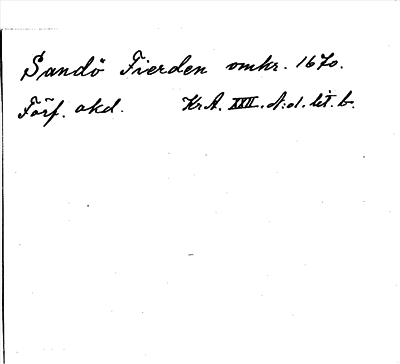 Sandö Fierden omkr. 1670.
Förf. okd. KrA. XXII. A:d. lit. b.